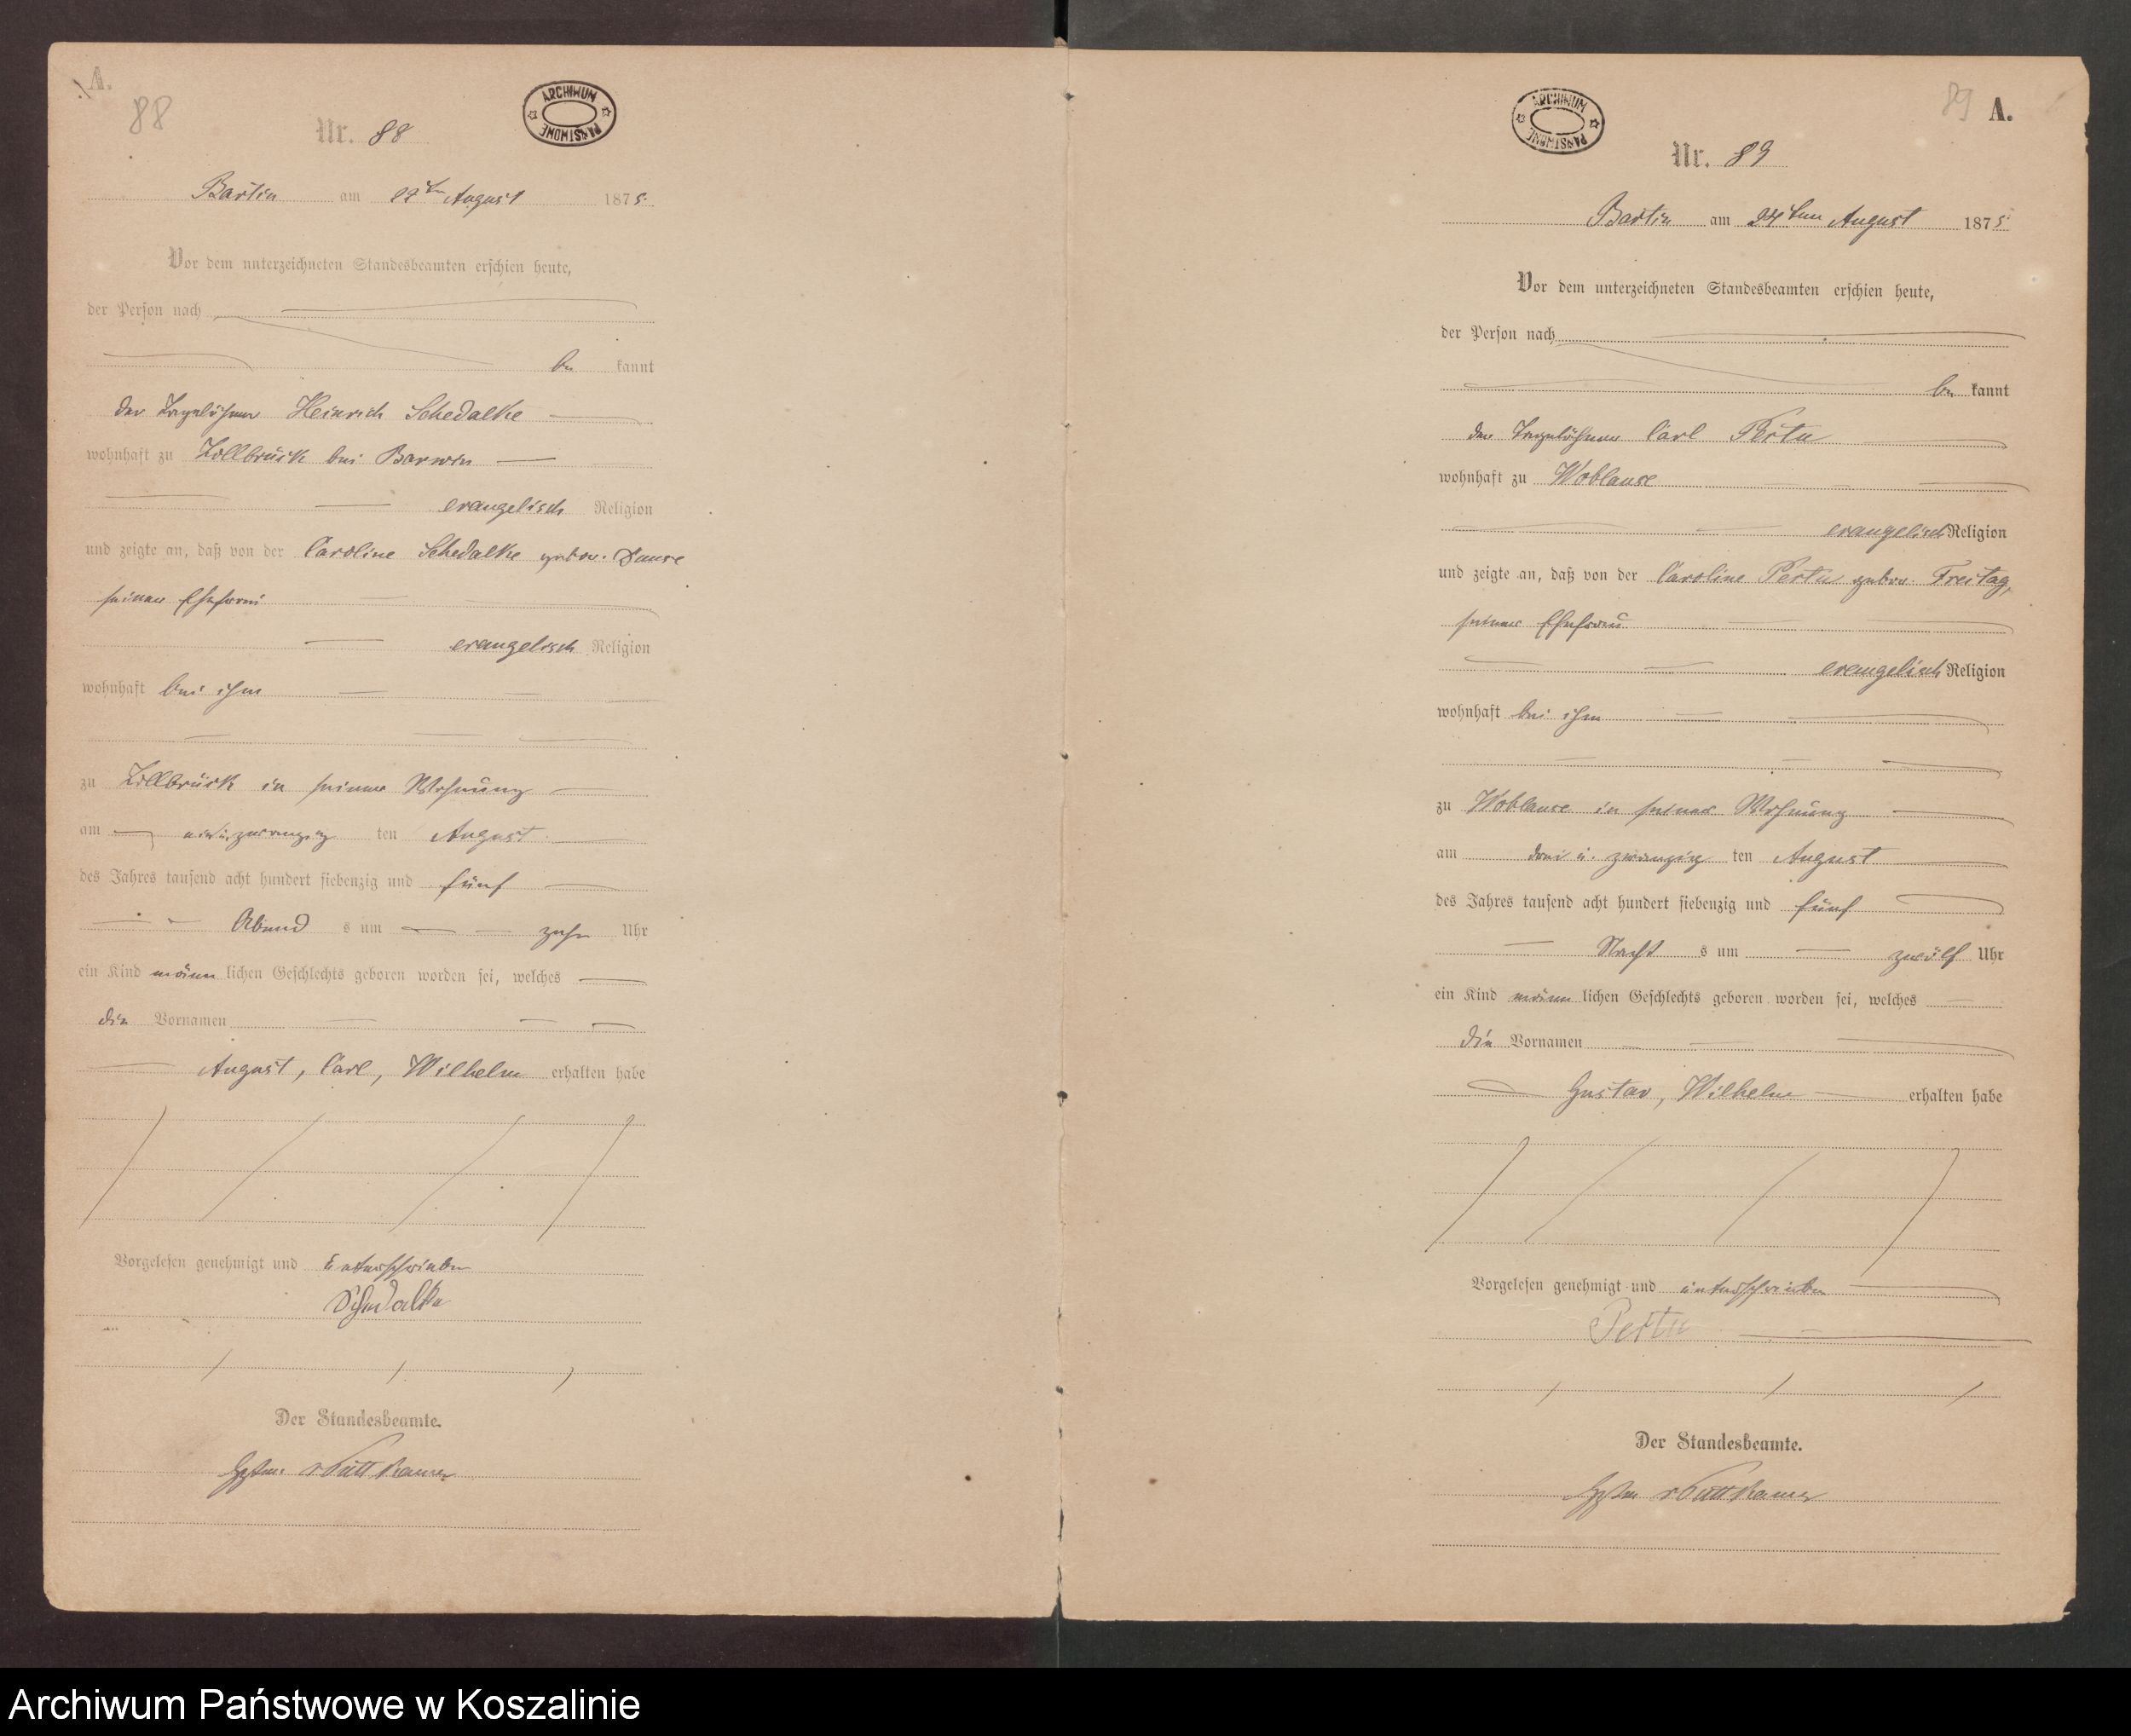 A.
88
ARCHIWUM PAŃSTWOWE
Nr. 88
Bartin am August 1875.
Vor dem unterzeichneten Standesbeamten erschien heute,
der Person nach
be kannt
der Tagelöhner Heinrich Schedalke
wohnhaft zu Zollbrück bei Barwin
evangelisch Religion
und zeigte an, daß von der Caroline Schedalke gebor.
seiner Ehefrau
evangelisch Religion
wohnhaft bei ihm
zu Zollbrück in seiner Wohnung
am ten August
des Jahres tausend acht hundert siebenzig und fünf
Abend s um zehn Uhr
ein Kind männ lichen Geschlechts geboren worden sei, welches
die Vornamen
August, Carl, Wilhelm erhalten habe
Vorgelesen genehmigt und unterschrieben
Schedalke
Der Standesbeamte.
v Puttkamer
89 A.
ARCHIWUM PAŃSTWOWE
Nr. 89
Bartin am 24ten August 1875
Vor dem unterzeichneten Standesbeamten erschien heute,
der Person nach
be kannt
der Tagelöhner Carl
wohnhaft zu Woblanse
evangelisch Religion
und zeigte an, daß von der Caroline gebor. Freitag,
seiner Ehefrau
evangelisch Religion
wohnhaft bei ihm
zu Woblanse in seiner Wohnung
am drei u. zwanzig ten August
des Jahres tausend acht hundert siebenzig und fünf
Nacht s um zwölf Uhr
ein Kind männ lichen Geschlechts geboren worden sei, welches
die Vornamen
Gustav, Wilhelm erhalten habe
Vorgelesen genehmigt und unterschrieben
Der Standesbeamte.
v Puttkamer
Archiwum Państwowe w Koszalinie